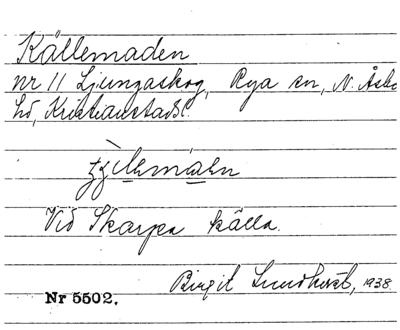 Källemaden
nr 11 Ljungaskog, Rya sn, N. Åsbo
hd, Kristianstads l.
Vid Skarpa källa.
Birgit Lundkvist, 1938
Nr 5502.